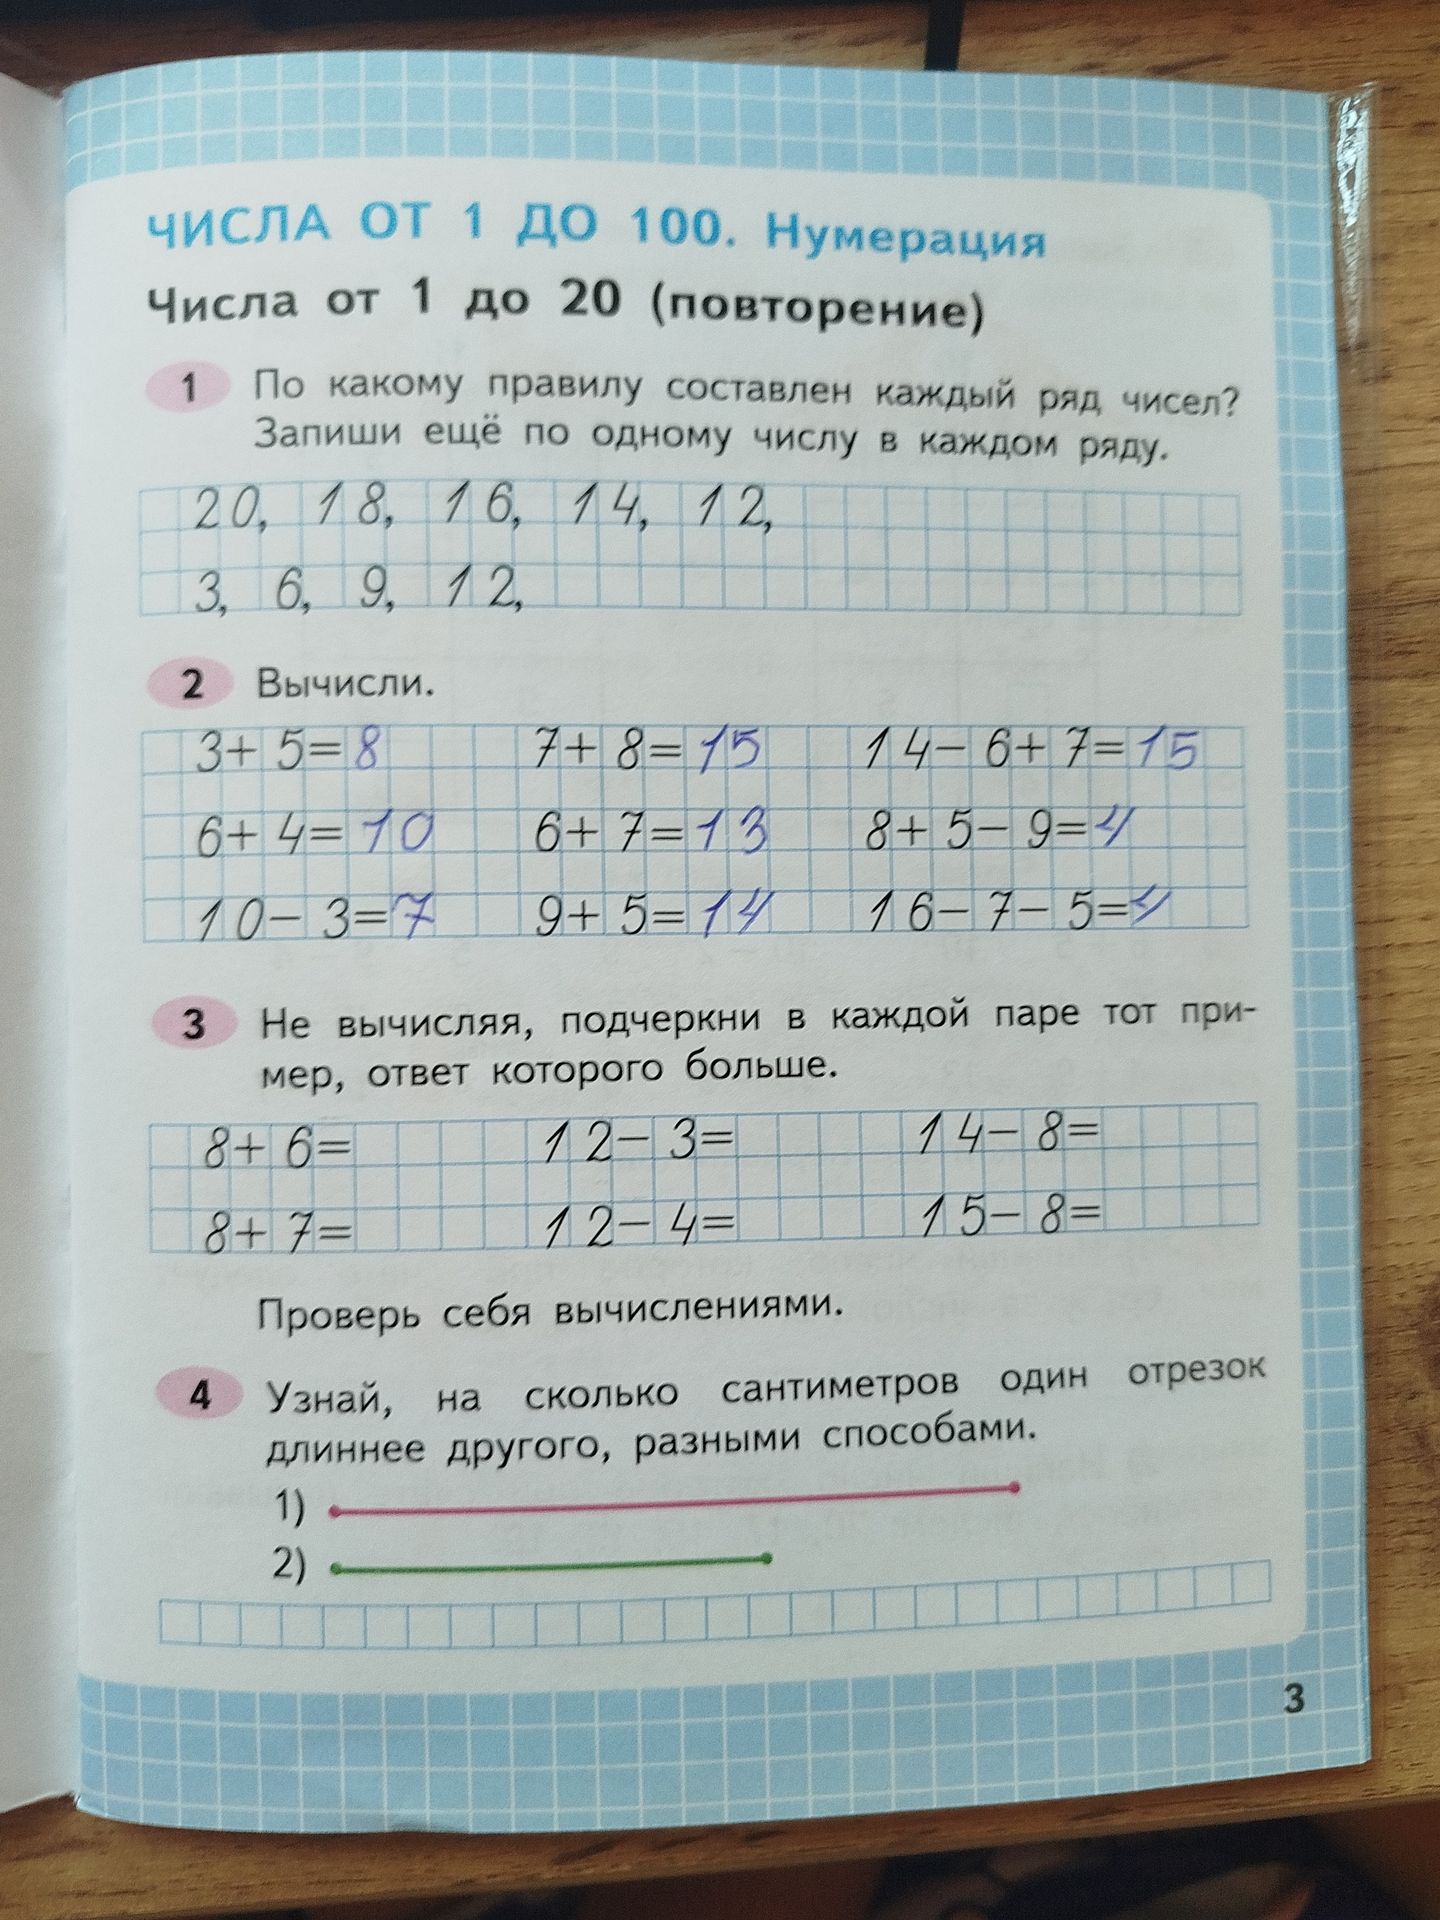 ЧИСЛА ОТ 1 ДО 100. Нумерация
Числа от 1 до 20 (повторение)
1 По какому правилу составлен каждый ряд чисел?
Запиши ещё по одному числу в каждом ряду.
20, 18, 16, 14, 12,
3, 6, 9, 12,
2 Вычисли.
3+5=8 7+8=15 14-6+7=15
6+4=10 6+7=13 8+5-9=4
10-3=7 9+5=14 16-7-5=4
3 Не вычисляя, подчеркни в каждой паре тот при-
мер, ответ которого больше.
8+6= 12-3= 14-8=
8+7= 12-4= 15-8=
Проверь себя вычислениями.
4 Узнай, на сколько сантиметров один отрезок
длиннее другого, разными способами.
1)
2)
3